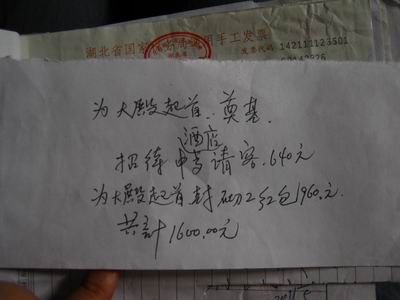 湖北省国家 用手工发票
发票代码 142111123501
为大殿起首、奠基.
酒店
招待中 请客.640元
为大殿起首封砌工红包960.元
共計1600.00元